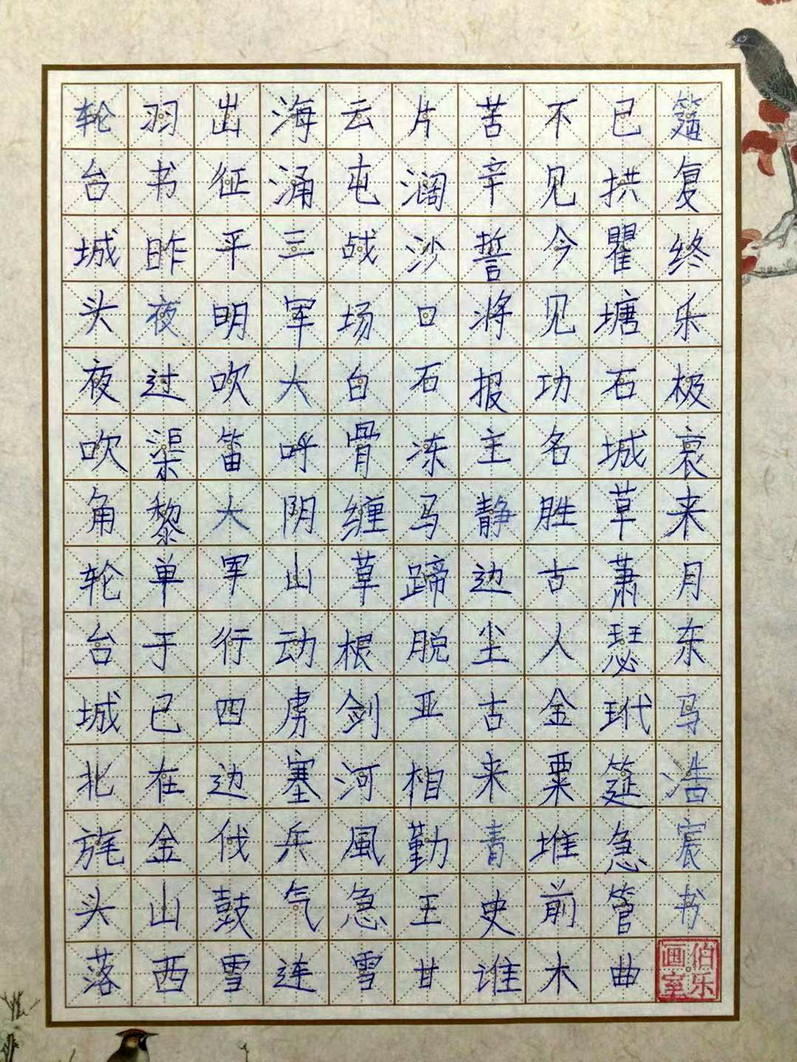 轮台城头夜吹角轮台城北旄头落
羽书昨夜过渠黎单于已在金山西
出征平明吹笛大军行四边伐鼓雪
海涌三军大呼阴山动虏塞兵气连
云屯战场白骨缠草根剑河風急雪
片阔沙口石冻马蹄脱亚相勤王甘
苦辛誓将报主静边尘古来青史谁
不见今见功名胜古人金粟堆前木
已拱瞿塘石城草萧瑟玳筵急管曲
筵复终乐极哀来月东马浩宸书
伯乐画室